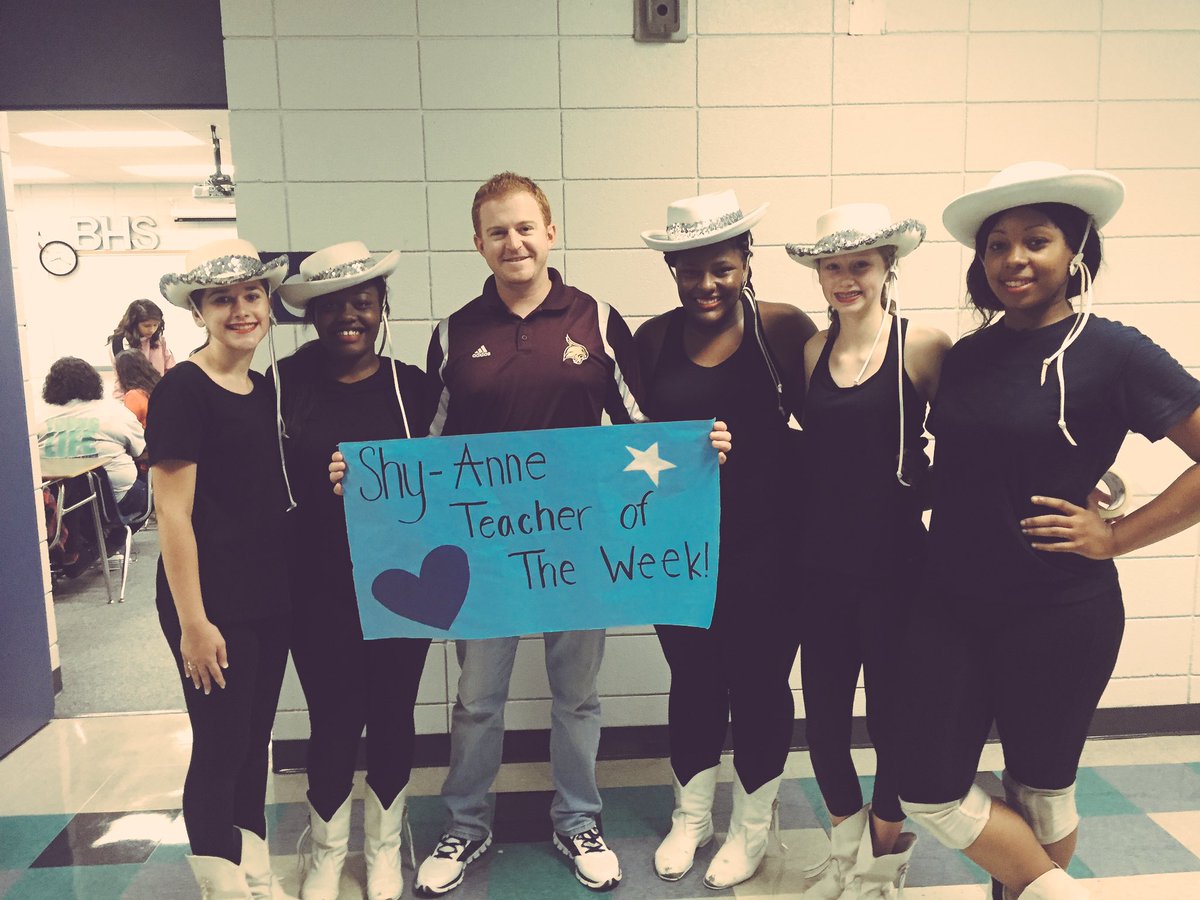 BHS
adidas
Shy-Anne
Teacher of
The Week!